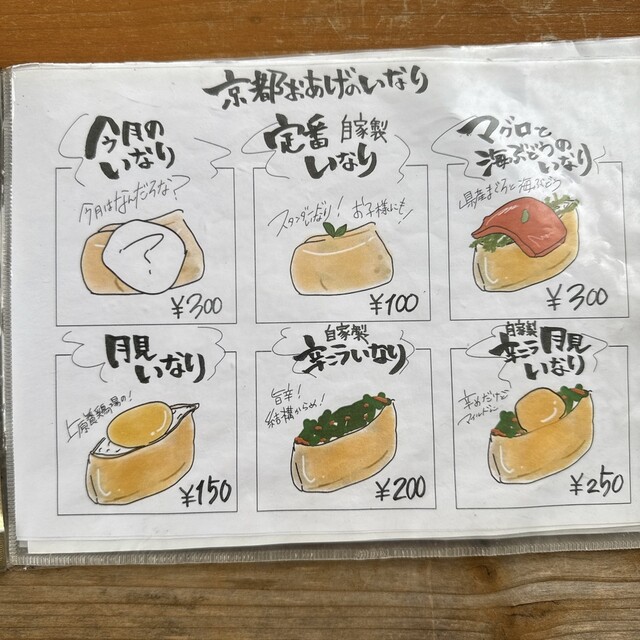 京都おあげのいなり
今月の
いなり
今月はなんだろな?
?
¥300
定番 自家製
いなり
お子様にも!
¥100
マグロと
海ぶどうの
いなり
県産まぐろと海ぶどう
¥300
月見
いなり
上原養鶏場の!
¥150
自家製
辛ニラいなり
旨辛!
結構からめ!
¥200
自家製
辛ニラ月見
いなり
辛めだけど
マイルド
¥250